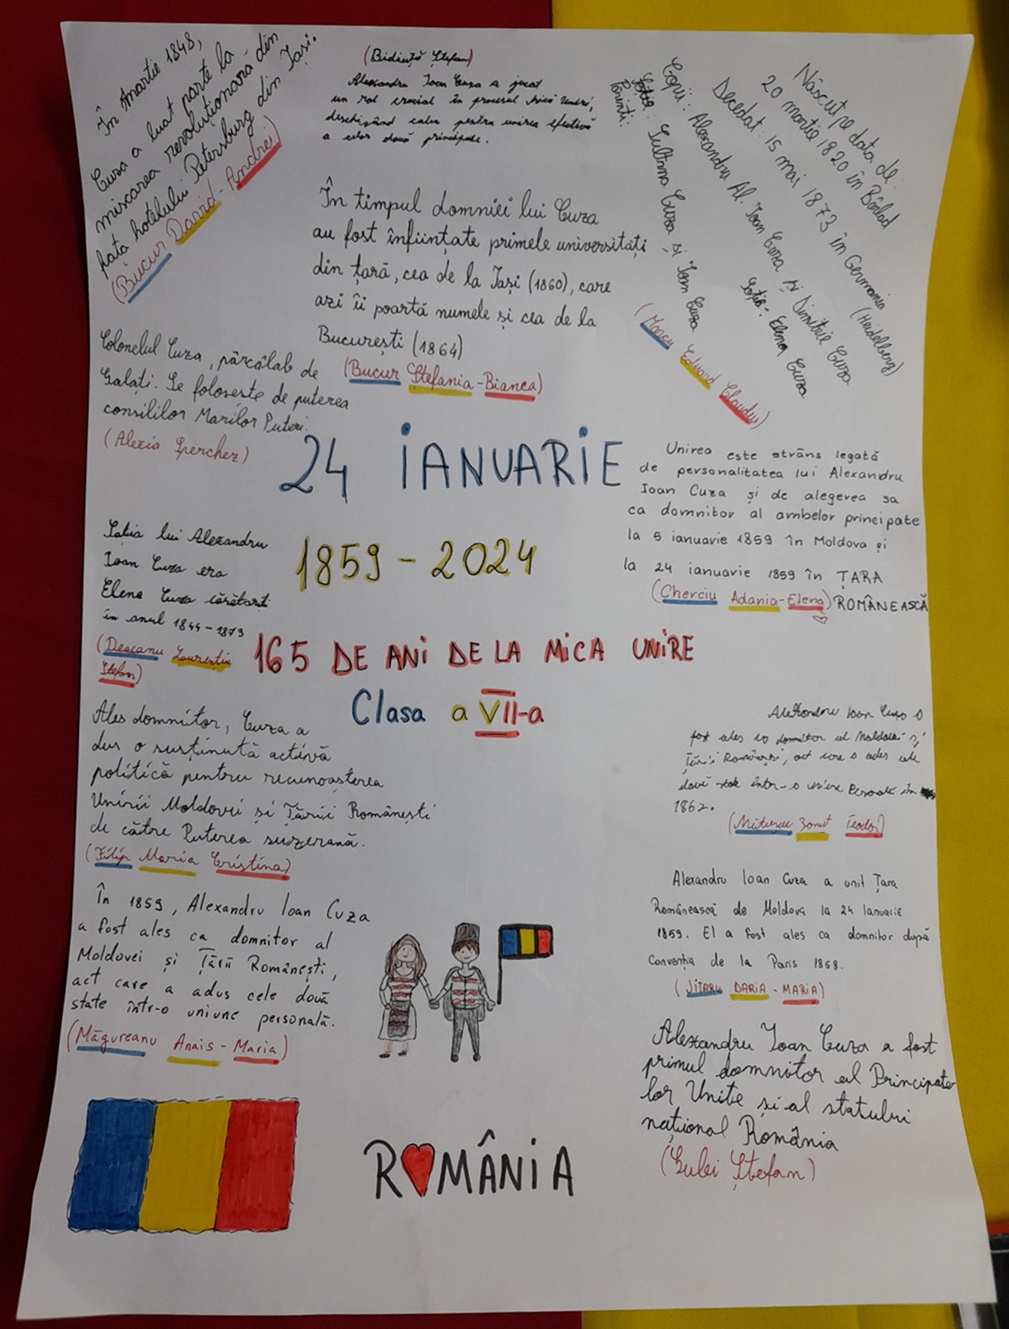 În martie 1848,
Cuza a luat parte la
mișcarea revoluționară din
fața hotelului Petersburg din Iași.
(Bucur David-Andrei)
(Bidință Ștefan)
Alexandru Ioan Cuza a jucat
un rol crucial în procesul Micii Uniri,
deschizând calea pentru unirea efectivă
a celor două principate.
Născut pe data de:
20 martie 1820 în Bârlad
Decedat: 15 mai 1873 în Germania
(Heidelberg)
Copii: Alexandru Al. Ioan Cuza și Dimitrie Cuza
Soția: Elena Cuza
Părinți: Sultana Cuza și Ioan Cuza
(Marcu Eduard Claudiu)
În timpul domniei lui Cuza
au fost înființate primele universități
din țară, cea de la Iași (1860), care
azi îi poartă numele și cea de la
București (1864)
(Bucur Ștefania-Bianca)
Colonelul Cuza, pârcălab de
Galați. Se folosește de puterea
consililor Marilor Puteri.
(Alexia Sperchez)
24 IANUARIE
1859-2024
165 DE ANI DE LA MICA UNIRE
Clasa a VII-a
Unirea este strâns legată
de personalitatea lui Alexandru
Ioan Cuza și de alegerea sa
ca domnitor al ambelor principate
la 5 ianuarie 1859 în Moldova și
la 24 ianuarie 1859 în ȚARA
ROMÂNEASCĂ
(Cherciu Adania-Elena)
Soția lui Alexandru
Ioan Cuza era
Elena Cuza căsătoriți
în anul 1844-1873
(Deacanu Laurentiu
Ștefan)
Ales domnitor, Cuza a
dus o susținută activă
politică pentru recunoașterea
Unirii Moldovei și Țării Românești
de către Puterea suzerană.
(Filip Maria Cristina)
Alexandru Ioan Cuza a
fost ales ca domnitor al Moldovei și
Țării Românești, act care a adus cele
două state într-o unire Personală în
1862.
(Mitusec Ionut Teodor)
În 1859, Alexandru Ioan Cuza
a fost ales ca domnitor al
Moldovei și Țării Românești,
act care a adus cele două
state într-o uniune personală.
(Măgureanu Anais-Maria)
Alexandru Ioan Cuza a unit Țara
Românească de Moldova la 24 Ianuarie
1859. El a fost ales ca domnitor după
Convenția de la Paris 1858.
(JITARU DARIA-MARIA)
Alexandru Ioan Cuza a fost
primul domnitor al Principate
lor Unite și al statului
național România
(Gulei Ștefan)
ROMÂNIA